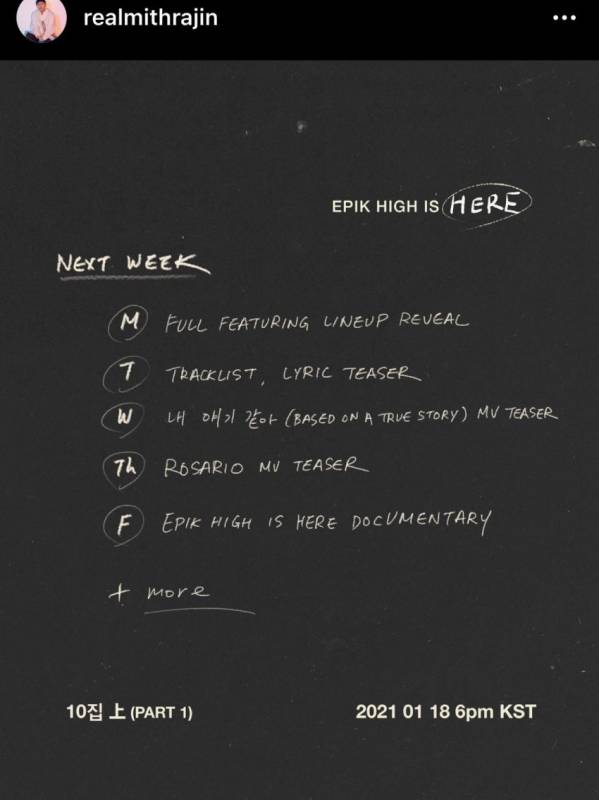 realmithrajin
EPIK HIGH IS HERE
NEXT WEEK
M FULL FEATURING LINEUP REVEAL
T TRACKLIST, LYRIC TEASER
W 내 얘기 같아 (BASED ON A TRUE STORY) MV TEASER
Th ROSARIO MV TEASER
F EPIK HIGH IS HERE DOCUMENTARY
+ more
10집 上 (PART 1) 2021 01 18 6pm KST